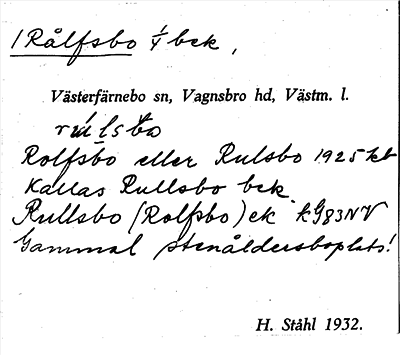 1 Rålfsbo 1/4 bek,
Västerfärnebo sn, Vagnsbro hd, Västm. l.
rúlsbo
Rolfsbo eller Rulsbo 1925 kb
Kallas Rullsbo bek
Rullsbo (Rolfsbo) ek kG83NV
Gammal stenåldersboplats!
H. Ståhl 1932.